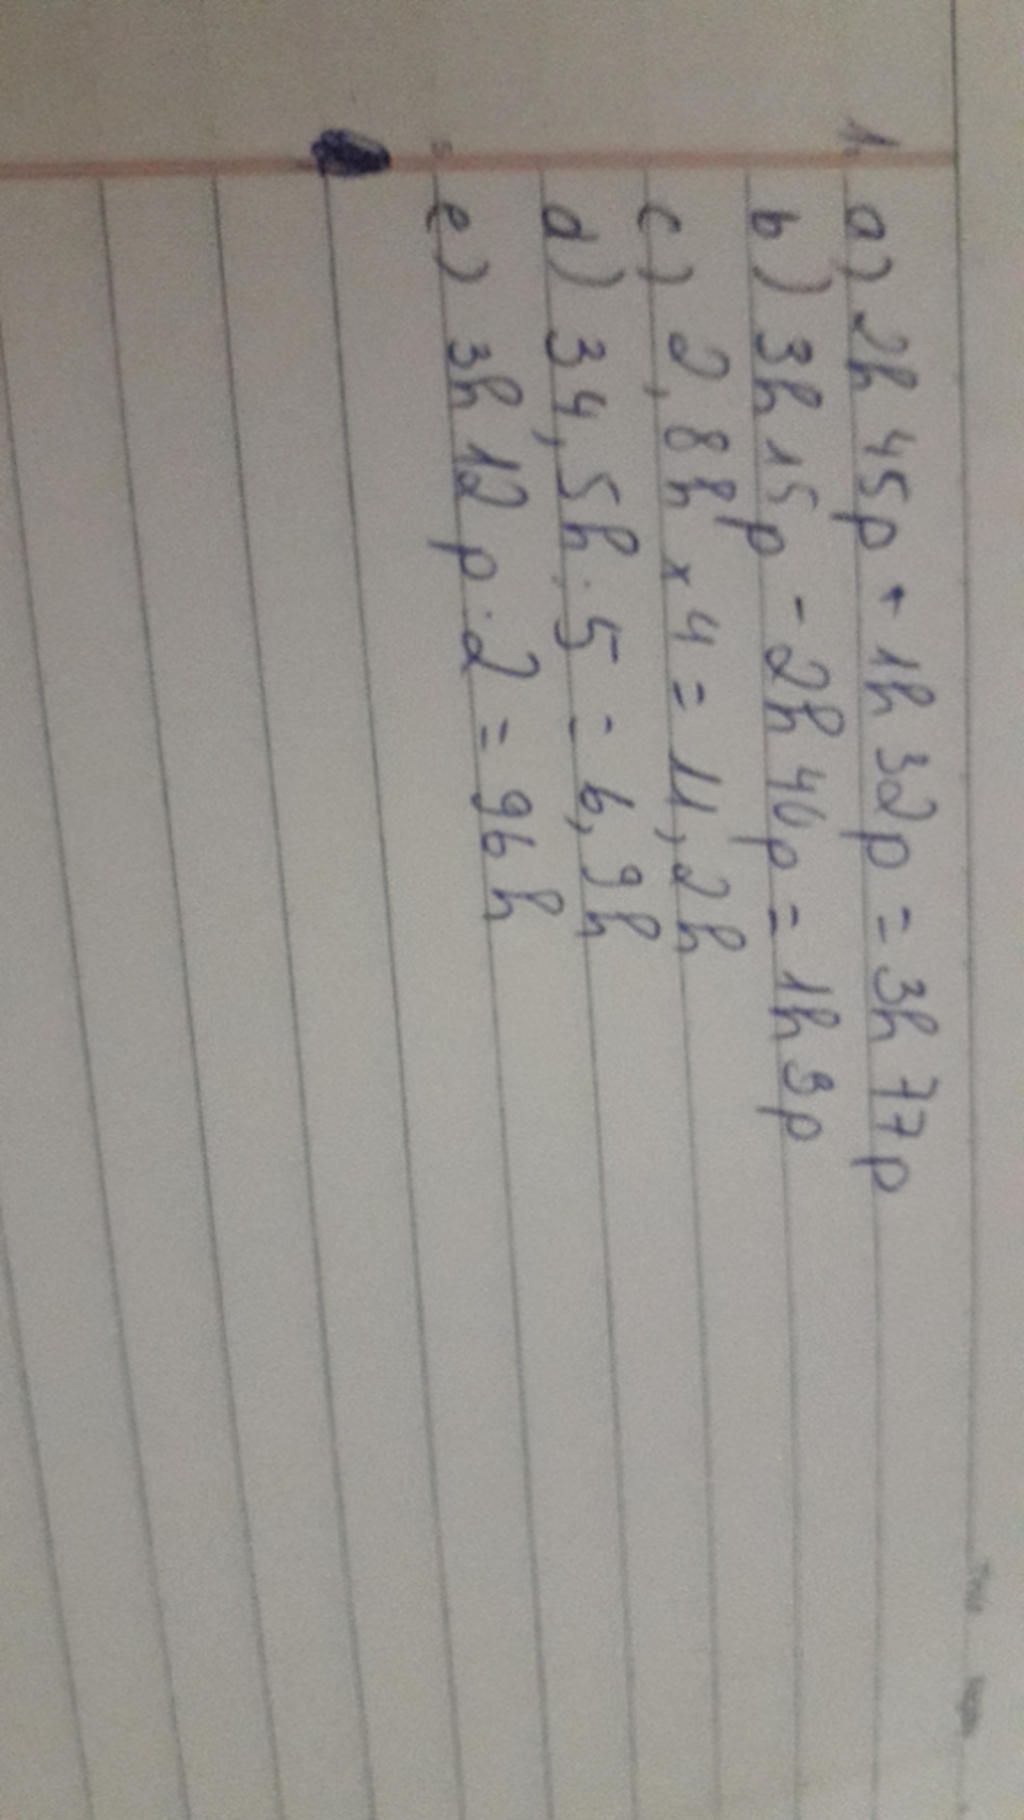 1. a) 2h 45p + 1h 32p = 3h 77p
b) 3h 15p - 2h 40p = 1h 9p
c) 2,8h x 4 = 11,2h
d) 34,5h : 5 = 6,9h
e) 3h 12p : 2 = 96h